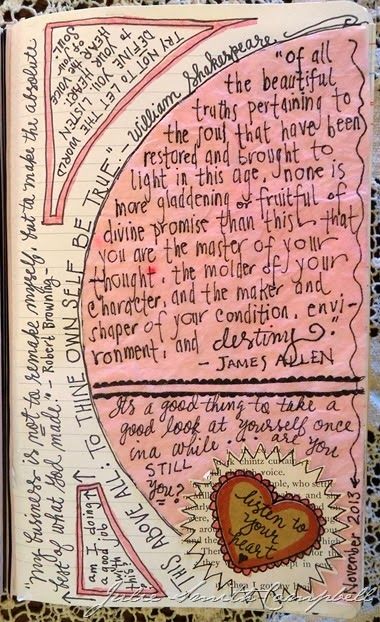 TRY NOT TO LET THE WORLD
DEFINE YOU. LISTEN
TO YOUR HEART.
HEAR THE VOICE
OF YOUR
SOUL
"my business is not to remake myself, but to make the absolute
best of what God made." - Robert Browning -
THIS ABOVE ALL: TO THINE OWN SELF BE TRUE." - William Shakespeare
"of all
the beautiful
truths pertaining to
the soul that have been
restored and brought to
light in this age, none is
more gladdening or fruitful of
divine promise than this - that
you are the master of your
thought, the molder of your
character, and the maker and
shaper of your condition, envi-
ronment, and destiny."
- JAMES ALLEN
It's a good thing to take a
good look at yourself once
in a while.... are you
STILL
you?
am I doing
a good job
with
this?
back chintz curtain
voice.
listen to
your
heart
November 2013
Julie Smith Campbell